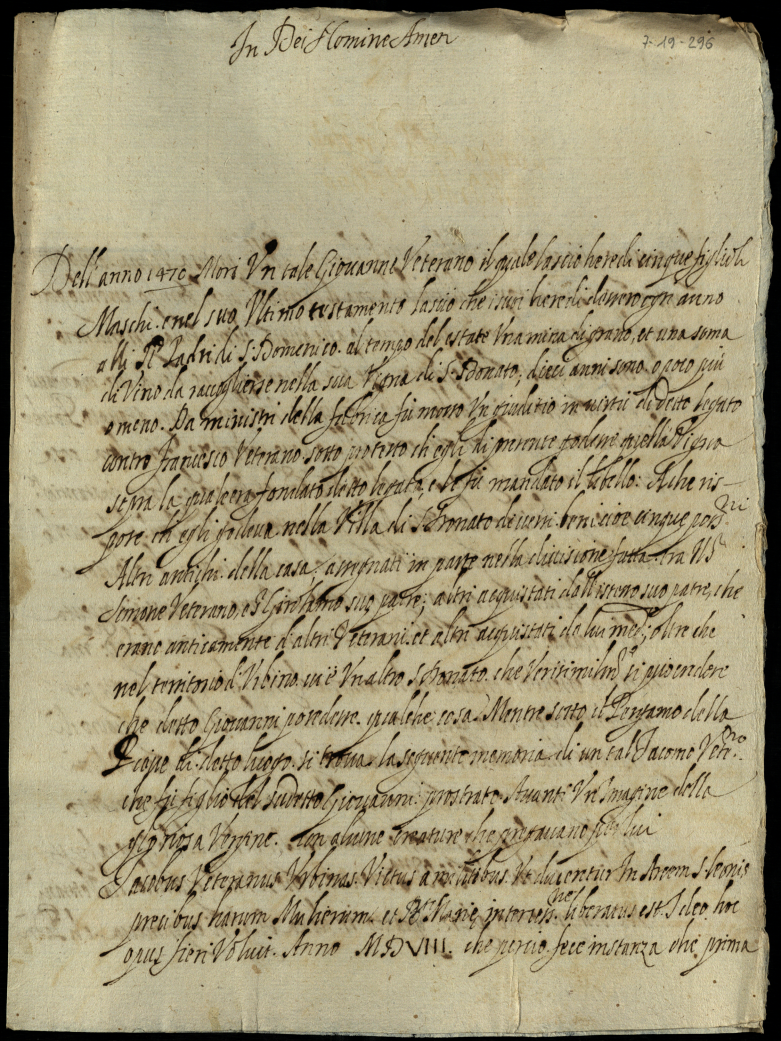 In Dei Nomine Amen
7-19-296
Dell'anno 1470 Mori Un tale Giouanni Veterano il quale lascio heredi cinque figlioli
Maschi. e nel suo Ultimo testamento lascio che i suoi heredi dessero ogn'anno
alli RR Padri di S. Domenico. al tempo del estate Una mina di grano, et una soma
di Vino da raccogliersi nella sua Vigna di S. Donato, dieci anni sono, o poco piu
o meno. Da ministri della fabrica fù mosso Un giuditio in uirtù di detto legato
contro francesco Veterano sotto pretesto ch'egli di presente godesse quella Vigna
sopra la quale era fondato detto legato, e le fù mandato il libello: Al che ris-
pose, ch'egli godeua nella Villa di S. Donato diuersi beni cioè cinque
Altri antichi della casa. assegnati in parte nella diuisione fatta tra
Simone Veterano, e Girolamo suo patre; altri acquistati dall'istesso suo patre, che
erano anticamente d'altri Veterani. et altri acquistati da lui med.; oltre che
nel territorio d'Urbino. ui è Un altro S. Donato. che Verisimilm.te si può credere
che detto Giouanni possedesse qualche cosa. Mentre sotto il Pergamo della
di detto luogo. si troua la seguente memoria. di un tal Jacomo
che fù figlio del sudetto Giouanni: prostrato Auanti Un Imagine della
gloriosa Vergine. con alcune creature che pregauano per lui
Jacobus Veteranus Urbinas Victus a militibus. Ut ducentur In Arcem S. Leonis
precibus harum Mulierum. et Marię interces.ne liberatus est. Ideo hoc
opus fieri Voluit. Anno MDVIIII. che perciò fece instanza che prima